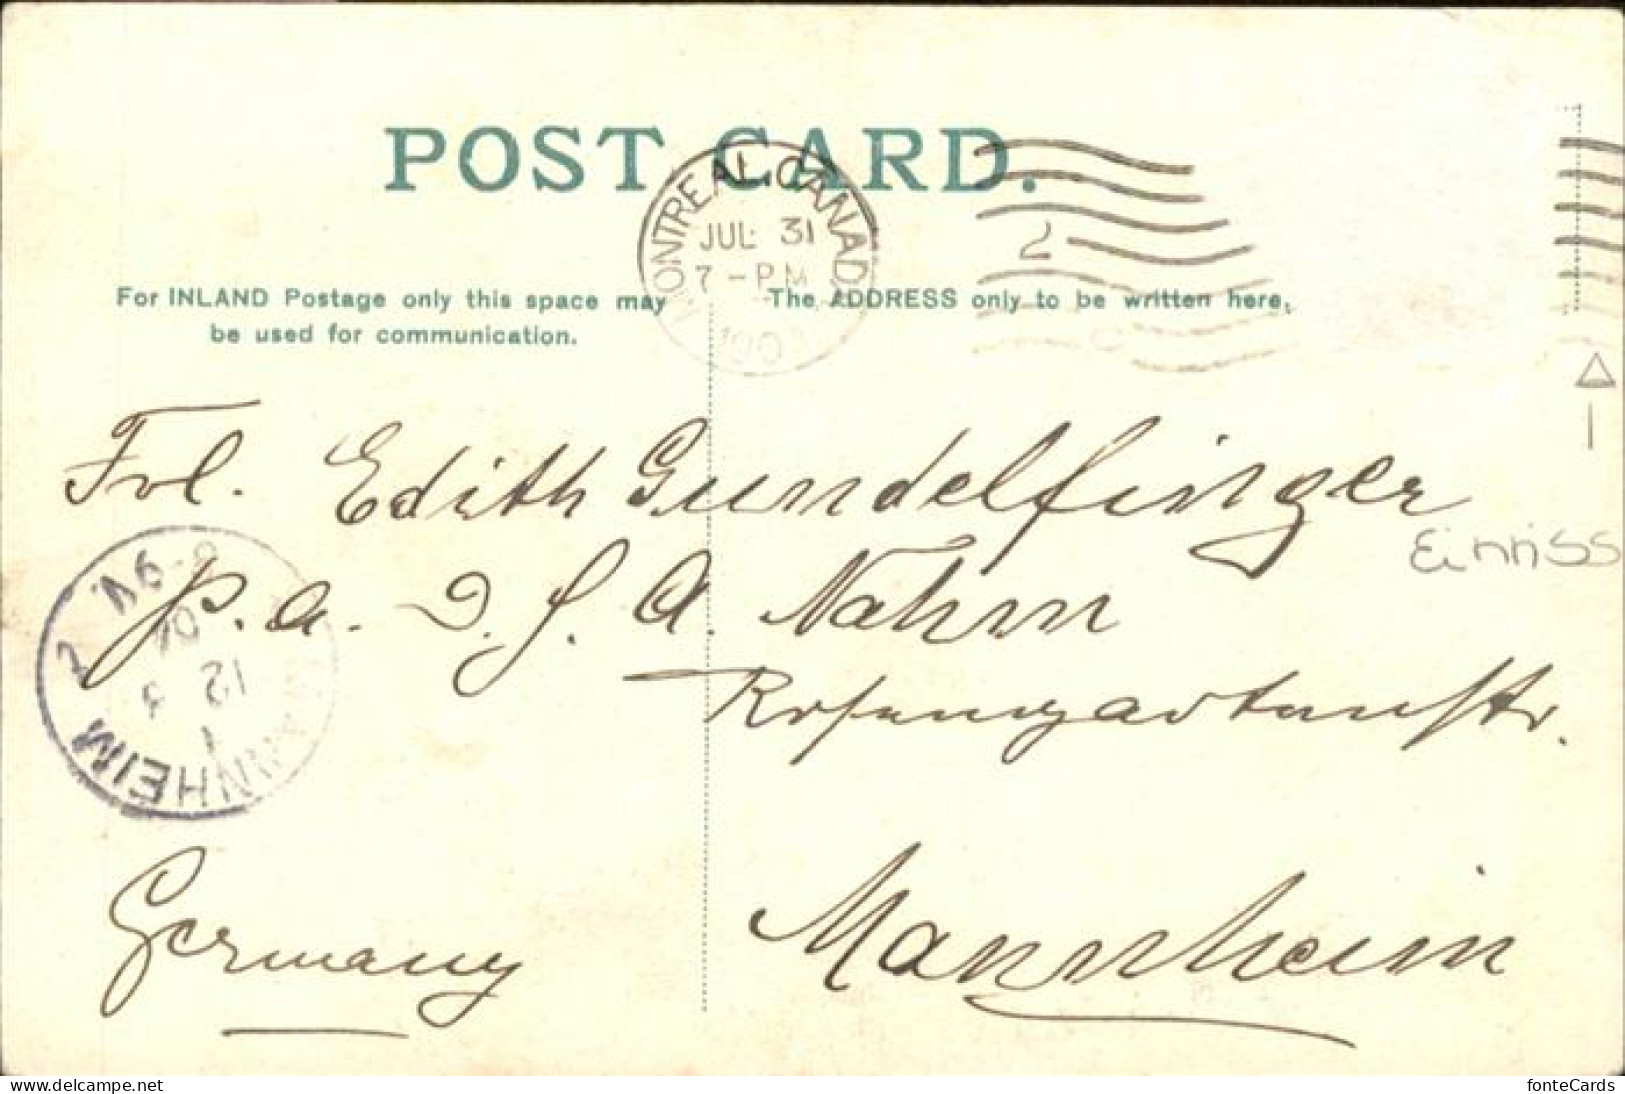 POST CARD.
MONTREAL. CANADA
JUL 31
7 - PM
For INLAND Postage only this space may
be used for communication.
The ADDRESS only to be written here.
Frl. Edith Gundelfinger
Einriss
p. a. D. J. A. Nahm
Rosengartenstr.
MANNHEIM
Germany
Mannheim
delcampe.net
fonteCards